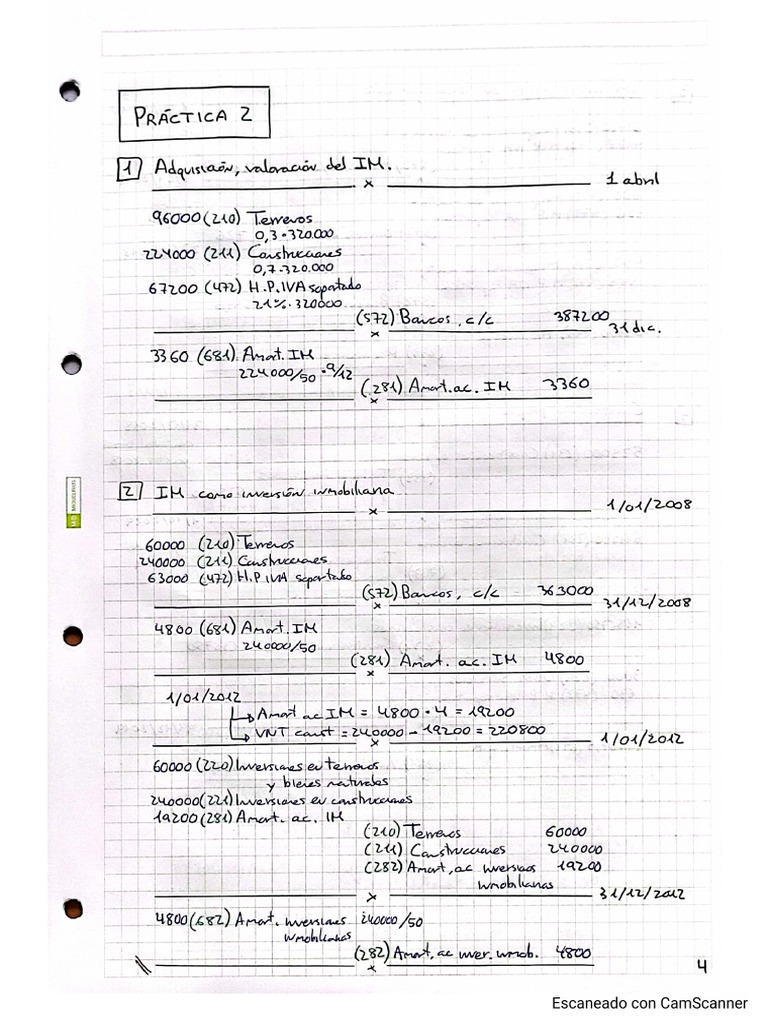 PRÁCTICA 2
1 Adquisición, valoración del IM.
x 1 abril
96000 (210) Terrenos
0,3·320.000
224000 (211) Construcciones
0,7·320.000
67200 (472) H.P. IVA soportado
21%·320000
(572) Bancos, c/c 387200
x 31 dic.
3360 (681) Amort. IM
224000/50 ·9/12
(281) Amort. ac. IM 3360
x
2 IM como inversión inmobiliaria
x 1/01/2008
60000 (210) Terrenos
240000 (211) Construcciones
63000 (472) H.P. IVA soportado
(572) Bancos, c/c 363000
x 31/12/2008
4800 (681) Amort. IM
240000/50
(281) Amort. ac. IM 4800
x
1/01/2012
↳ Amort ac IM = 4800 · 4 = 19200
↳ VNT const = 240000 - 19200 = 220800
x 1/01/2012
60000 (220) Inversiones en terrenos
y bienes naturales
240000 (221) Inversiones en construcciones
19200 (281) Amort. ac. IM
(210) Terrenos 60000
(211) Construcciones 240000
(282) Amort, ac inversiones 19200
inmobiliarias
x 31/12/2012
4800 (682) Amort. inversiones 240000/50
inmobiliarias
(282) Amort, ac inver. inmob. 4800
x
4
Escaneado con CamScanner